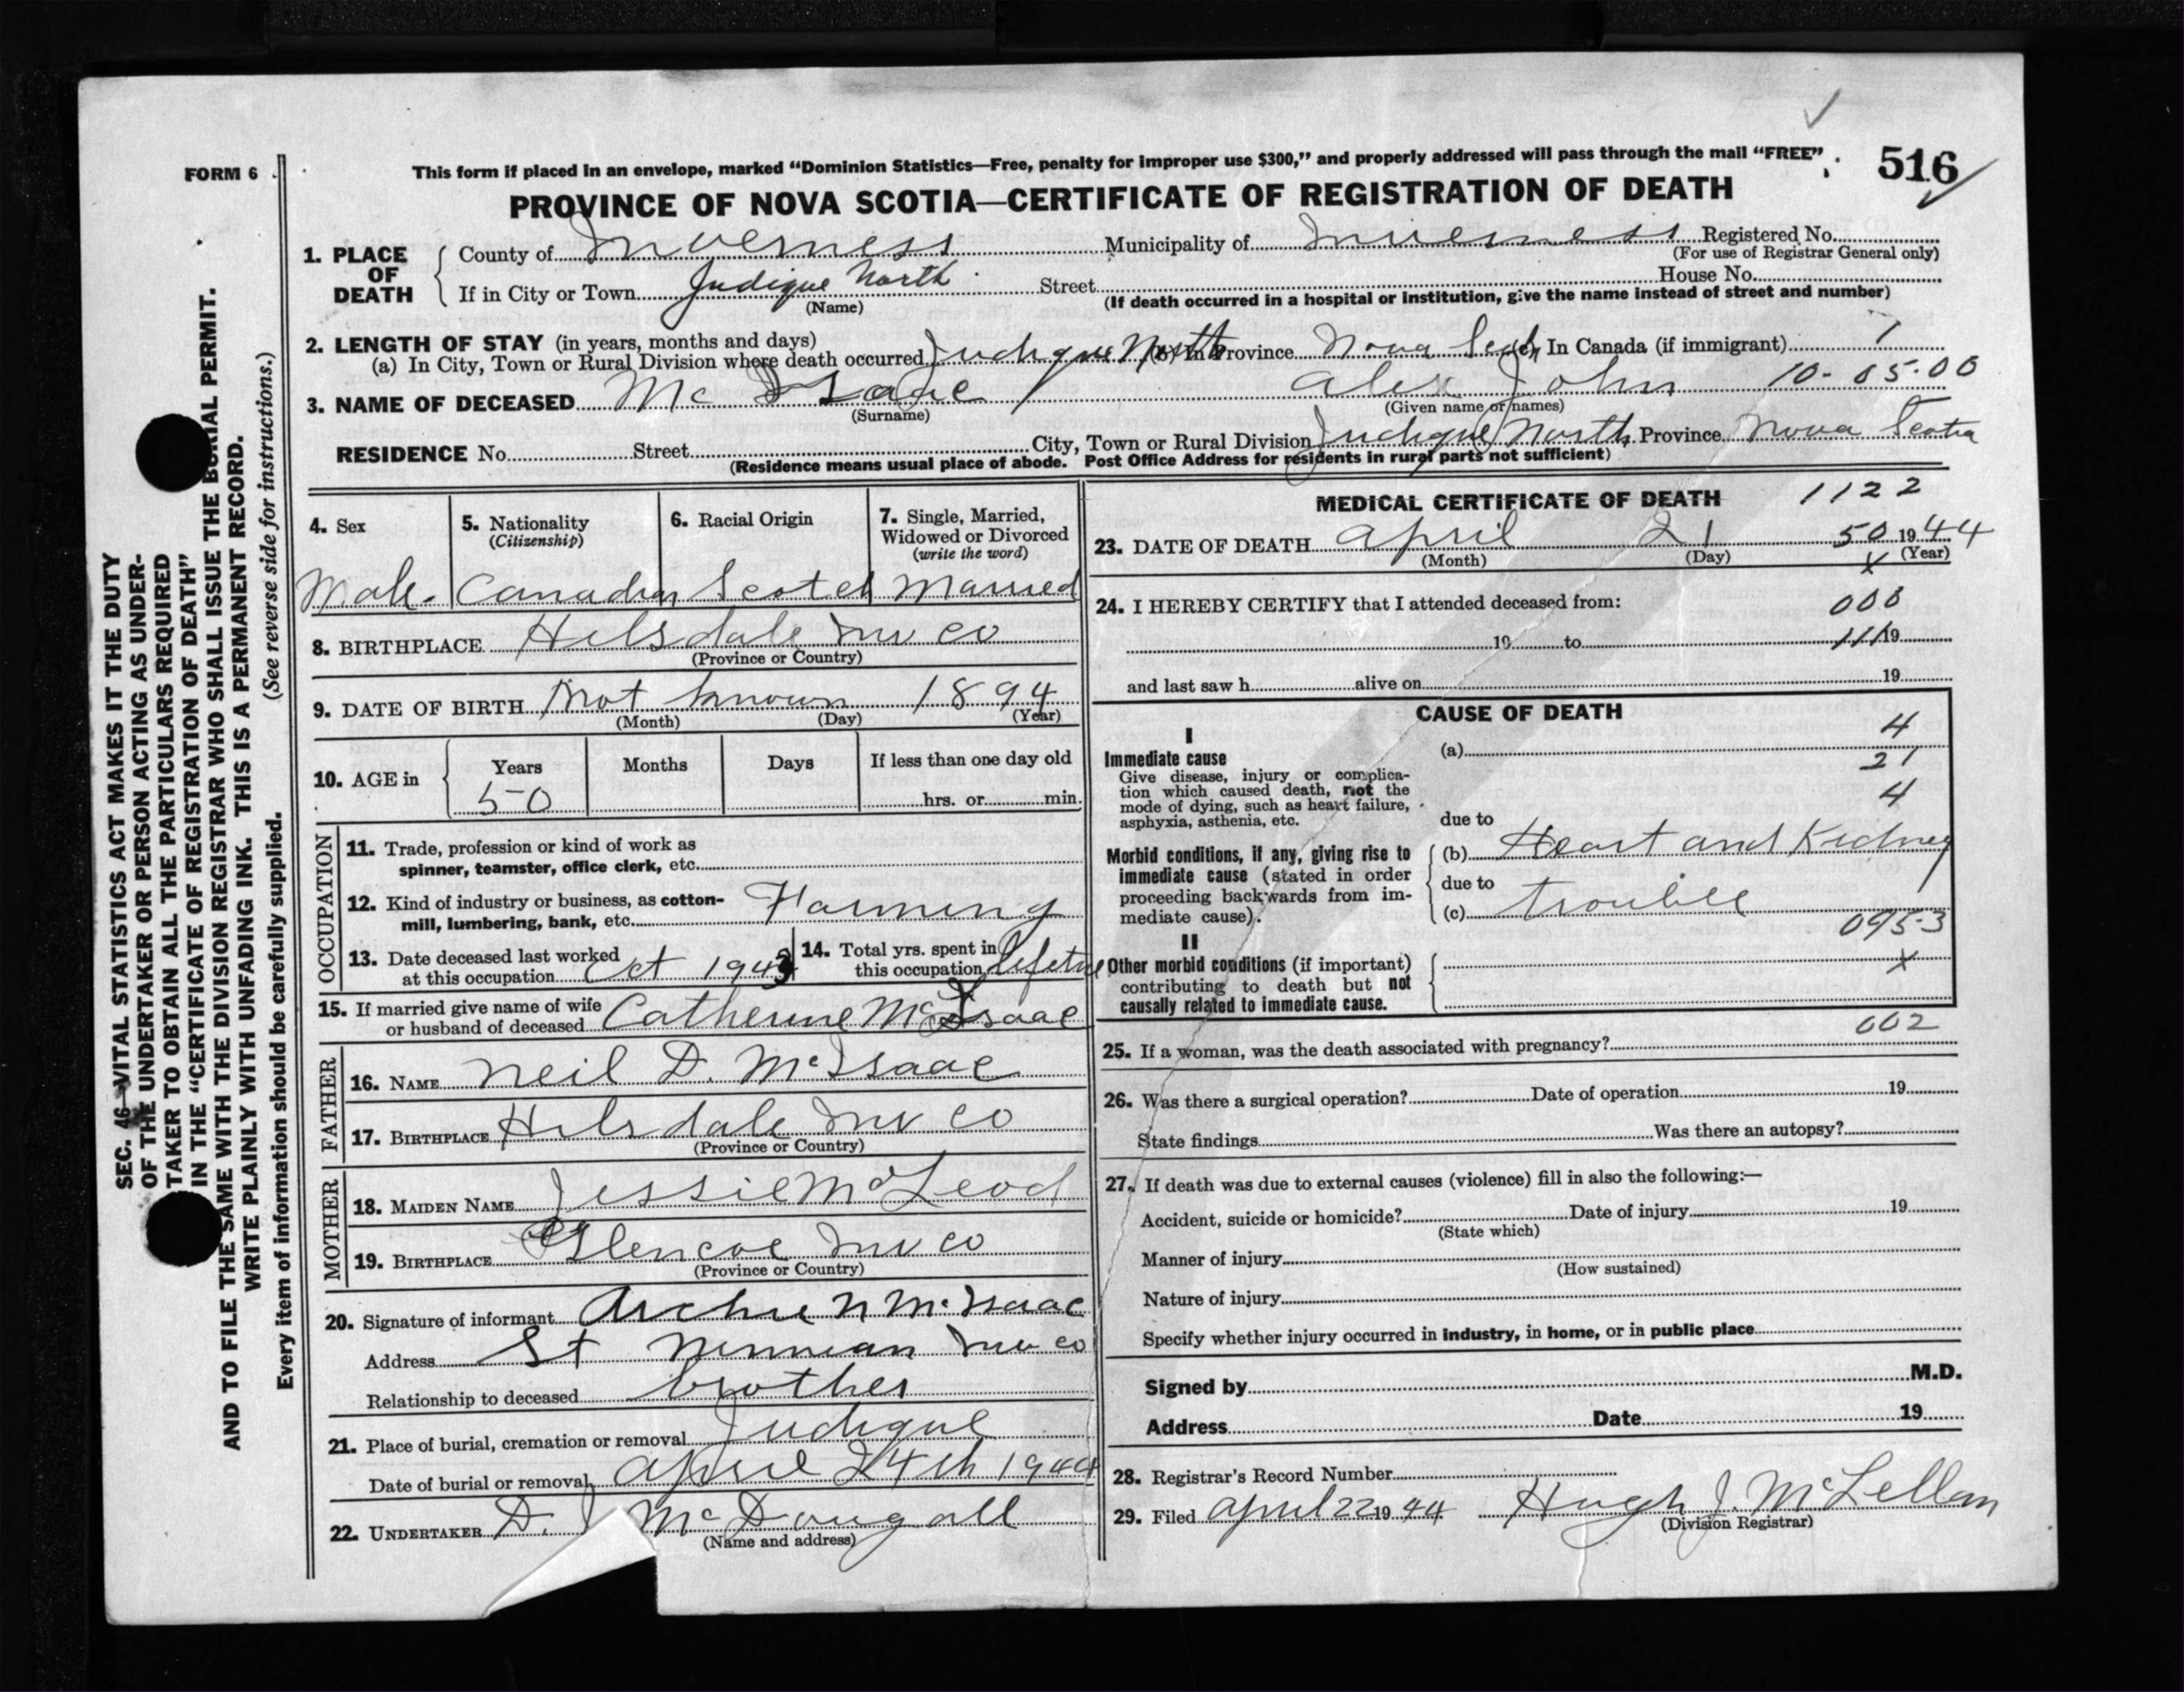 FORM 6
This form if placed in an envelope, marked “Dominion Statistics—Free, penalty for improper use $300,” and properly addressed will pass through the mail “FREE”.
516
PROVINCE OF NOVA SCOTIA—CERTIFICATE OF REGISTRATION OF DEATH
1. PLACE OF DEATH
County of Inverness Municipality of Inverness Registered No.
(For use of Registrar General only)
If in City or Town Judique North Street House No.
(Name) (If death occurred in a hospital or institution, give the name instead of street and number)
2. LENGTH OF STAY (in years, months and days)
(a) In City, Town or Rural Division where death occurred Judique North (b) In Province Nova Scotia In Canada (if immigrant) 1
3. NAME OF DECEASED McIsaac Alex John 10-05-00
(Surname) (Given name or names)
RESIDENCE No. Street City, Town or Rural Division Judique North Province Nova Scotia
(Residence means usual place of abode. Post Office Address for residents in rural parts not sufficient)
4. Sex
Male.
5. Nationality
(Citizenship)
Canadian
6. Racial Origin
Scotch
7. Single, Married,
Widowed or Divorced
(write the word)
Married
8. BIRTHPLACE Hilsdale Inv co
(Province or Country)
9. DATE OF BIRTH Not known 1894
(Month) (Day) (Year)
10. AGE in Years Months Days If less than one day old
50 hrs. or min.
OCCUPATION
11. Trade, profession or kind of work as
spinner, teamster, office clerk, etc.
12. Kind of industry or business, as cotton-
mill, lumbering, bank, etc. Farming
13. Date deceased last worked
at this occupation Oct 1943
14. Total yrs. spent in
this occupation
15. If married give name of wife
or husband of deceased Catherine McIsaac
FATHER
16. NAME Neil D. McIsaac
17. BIRTHPLACE Hilsdale Inv co
(Province or Country)
MOTHER
18. MAIDEN NAME Jessie McLeod
19. BIRTHPLACE Glencoe Inv co
(Province or Country)
20. Signature of informant Archie N McIsaac
Address St Ninnian Inv co
Relationship to deceased brother
21. Place of burial, cremation or removal Judique
Date of burial or removal April 24th 1944
22. UNDERTAKER D. J McDougall
(Name and address)
MEDICAL CERTIFICATE OF DEATH 1122
23. DATE OF DEATH April 21 50 1944
(Month) (Day) (Year)
X
24. I HEREBY CERTIFY that I attended deceased from: 000
19 to 111 19
and last saw h alive on 19
CAUSE OF DEATH
I
Immediate cause
Give disease, injury or complica-
tion which caused death, not the
mode of dying, such as heart failure,
asphyxia, asthenia, etc.
(a) 4
21
4
due to
Morbid conditions, if any, giving rise to
immediate cause (stated in order
proceeding backwards from im-
mediate cause).
(b) Heart and Kidney
due to
(c) trouble
095-3
II
Other morbid conditions (if important)
contributing to death but not
causally related to immediate cause.
X
002
25. If a woman, was the death associated with pregnancy?
26. Was there a surgical operation? Date of operation 19
State findings Was there an autopsy?
27. If death was due to external causes (violence) fill in also the following:—
Accident, suicide or homicide? Date of injury 19
(State which)
Manner of injury
(How sustained)
Nature of injury
Specify whether injury occurred in industry, in home, or in public place
Signed by M.D.
Address Date 19
28. Registrar's Record Number
29. Filed April 22 1944 Hugh J. McLellan
(Division Registrar)
SEC. 46—VITAL STATISTICS ACT MAKES IT THE DUTY
OF THE UNDERTAKER OR PERSON ACTING AS UNDER-
TAKER TO OBTAIN ALL THE PARTICULARS REQUIRED
IN THE “CERTIFICATE OF REGISTRATION OF DEATH”
AND TO FILE THE SAME WITH THE DIVISION REGISTRAR WHO SHALL ISSUE THE BURIAL PERMIT.
WRITE PLAINLY WITH UNFADING INK. THIS IS A PERMANENT RECORD.
Every item of information should be carefully supplied. (See reverse side for instructions.)